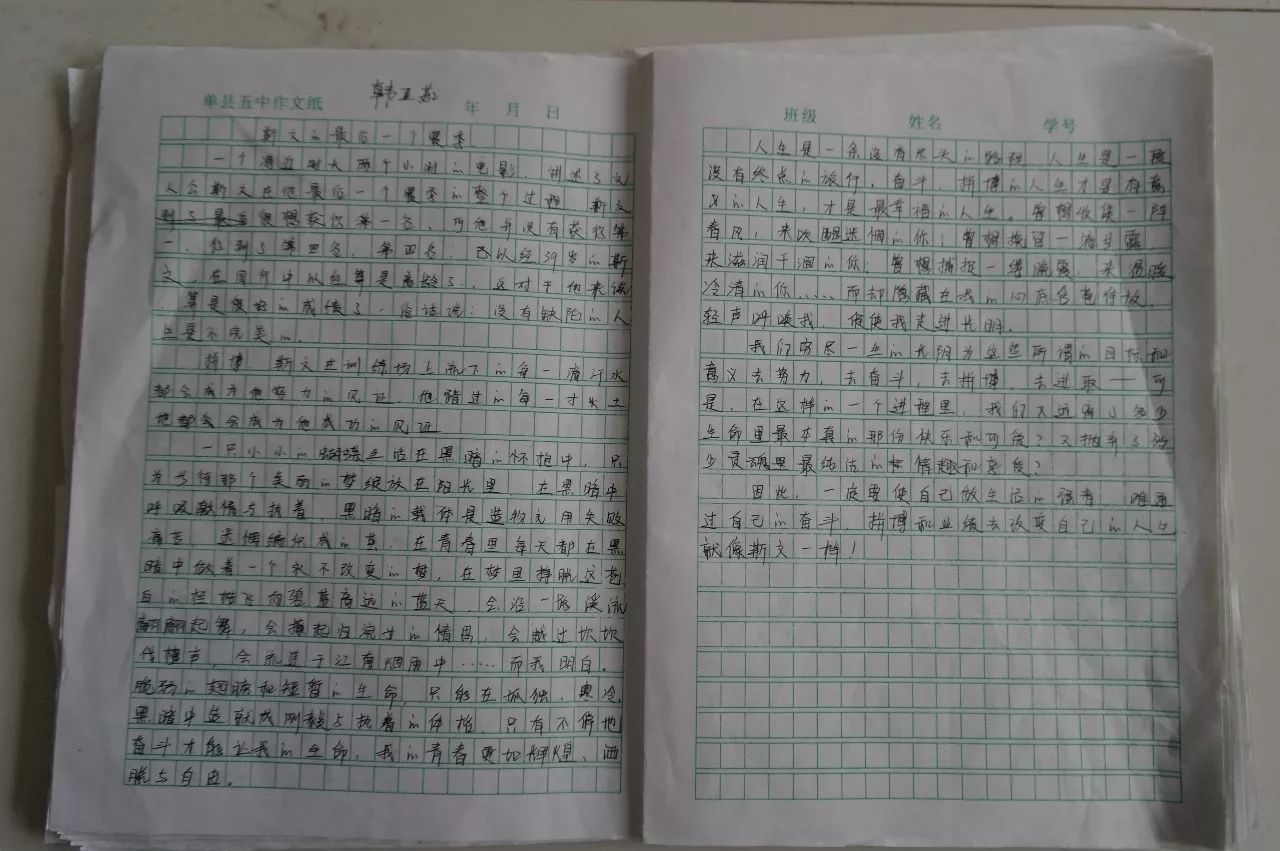 单县五中作文纸 韩亚 年 月 日
斯文的最后一个赛季
一个将近时大两个小时的电影，讲述了
人公斯文在他最后一个赛季的整个过程，斯文
到了最后很想获得第一名，可他并没有获得第
一，得到了第四名，第四名，已以经39岁的斯
文，在同行中以经算是高龄了，这对于他来说
，算是很好的成绩了。俗话说：没有缺陷的人
生是不完美的。
拼博，斯文在训练场上流下的每一滴汗水
都会成为他努力的见证，他踏过的每一寸水土
地都会会成为他成功的见证
一只小小的蝴蝶生活在黑暗的怀抱中，只
为等待那个美丽的梦绽放在阳光里，在黑暗中
呼吸激情与执着，黑暗的载体是造物主用失败
痛苦，迷惘编织成的茧，在青春里每天都在黑
暗中做着一个永不改变的梦，在梦里挣脱这苍
白的桎梏飞向碧蓝高远的蓝天，会沿一路溪流
翩翩起舞，会撩起归浣女的情思，会越过坎坎
伐檀声，会流连于江南烟雨中……而我明白，
脆弱的翅膀和短暂的生命，只能在孤独，寒冷，
黑暗中造就成刚毅与执着的体格，只有不停地
奋斗才能让我的生命，我的青春更加辉煌，洒
脱与自由。
班级 姓名 学号
人生是一条没有尽头的路程，人生是一段
没有终点的旅行，奋斗，拼博的人生才是有意
义的人生，才是最幸福的人生。曾想收集一阵
春风，来吹醒迷惘的你；曾想挽留一滴甘露，
来滋润干涸的你；曾想捕捉一缕，来温暖
冷清的你……而却隐藏在我的心底含苞待放，
轻声呼唤我，促使我走进光明。
我们穷尽一生的光阴为这些所谓的目标和
意义去努力，去奋斗，去拼博，去进取——可
是，在这样的一个进程里，我们又远离了多少
生命里最本真的那份快乐和可爱？又抛弃了多
少灵魂里最纯洁的情趣和爱？
因此，一定要使自己做生活的强者，唯通
过自己的奋斗，拼博和业绩去改变自己的人生
就像斯文一样！